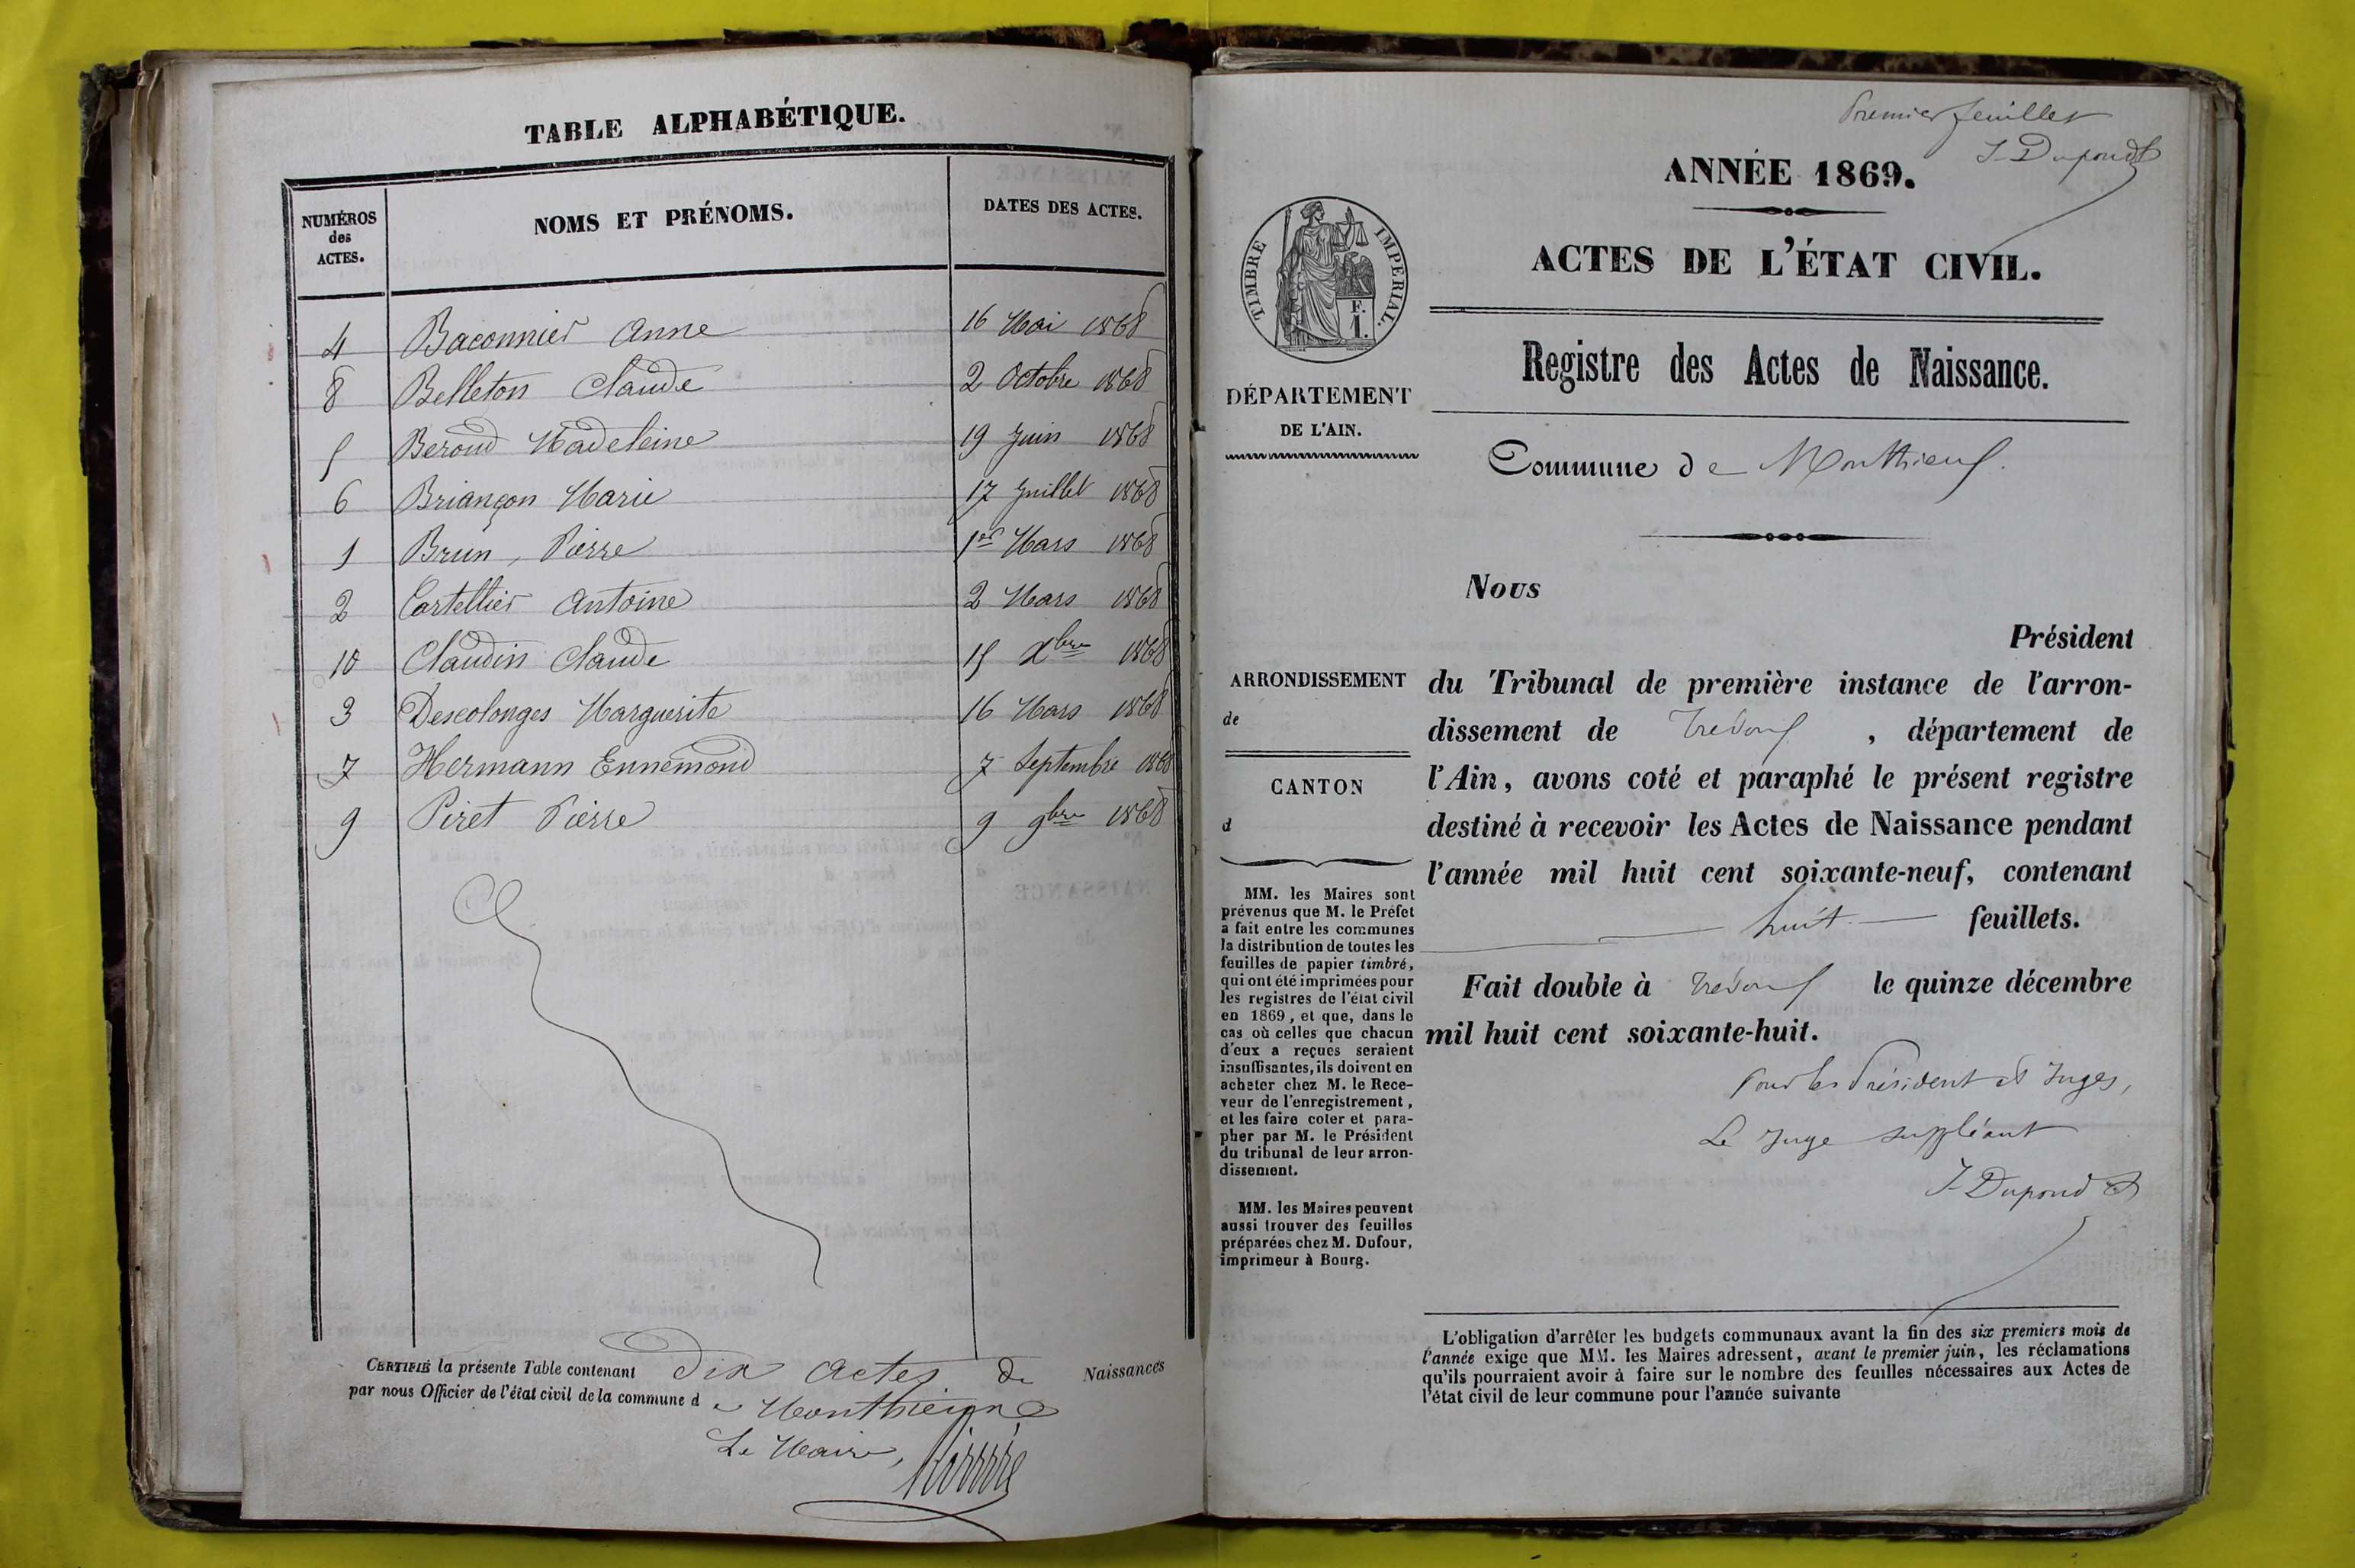 TABLE ALPHABÉTIQUE.
NUMÉROS des ACTES. NOMS ET PRÉNOMS. DATES DES ACTES.
4 Baconnier Anne 16 Mai 1868
8 Belleton Claude 2 Octobre 1868
5 Beroud Madeleine 19 Juin 1868
6 Briançon Marie 17 Juillet 1868
1 Brun, Pierre 1er Mars 1868
2 Cartellier Antoine 2 Mars 1868
10 Claudin Claude 15 Xbre 1868
3 Descolonges Marguerite 16 Mars 1868
7 Hermann Ennemond 7 Septembre 1868
9 Piret Pierre 9 9bre 1868
CERTIFIÉ la présente Table contenant Dix actes de Naissances
par nous Officier de l'état civil de la commune d e Monthieux
Le Maire,
Premier feuillet
J. Dupond
ANNÉE 1869.
ACTES DE L'ÉTAT CIVIL.
Registre des Actes de Naissance.
TIMBRE IMPERIAL.
F.
1.
DÉPARTEMENT
DE L'AIN.
Commune de Monthieux.
Nous
Président
du Tribunal de première instance de l'arron-
dissement de Trévoux, département de
l'Ain, avons coté et paraphé le présent registre
destiné à recevoir les Actes de Naissance pendant
l'année mil huit cent soixante-neuf, contenant
huit feuillets.
Fait double à Trévoux le quinze décembre
mil huit cent soixante-huit.
Pour les Président et Juges,
Le Juge suppléant
J. Dupond
ARRONDISSEMENT
de
CANTON
d
MM. les Maires sont
prévenus que M. le Préfet
a fait entre les communes
la distribution de toutes les
feuilles de papier timbré,
qui ont été imprimées pour
les registres de l'état civil
en 1869, et que, dans le
cas où celles que chacun
d'eux a reçues seraient
insuffisantes, ils doivent en
acheter chez M. le Rece-
veur de l'enregistrement,
et les faire coter et para-
pher par M. le Président
du tribunal de leur arron-
dissement.
MM. les Maires peuvent
aussi trouver des feuilles
préparées chez M. Dufour,
imprimeur à Bourg.
L'obligation d'arrêter les budgets communaux avant la fin des six premiers mois de
l'année exige que MM. les Maires adressent, avant le premier juin, les réclamations
qu'ils pourraient avoir à faire sur le nombre des feuilles nécessaires aux Actes de
l'état civil de leur commune pour l'année suivante